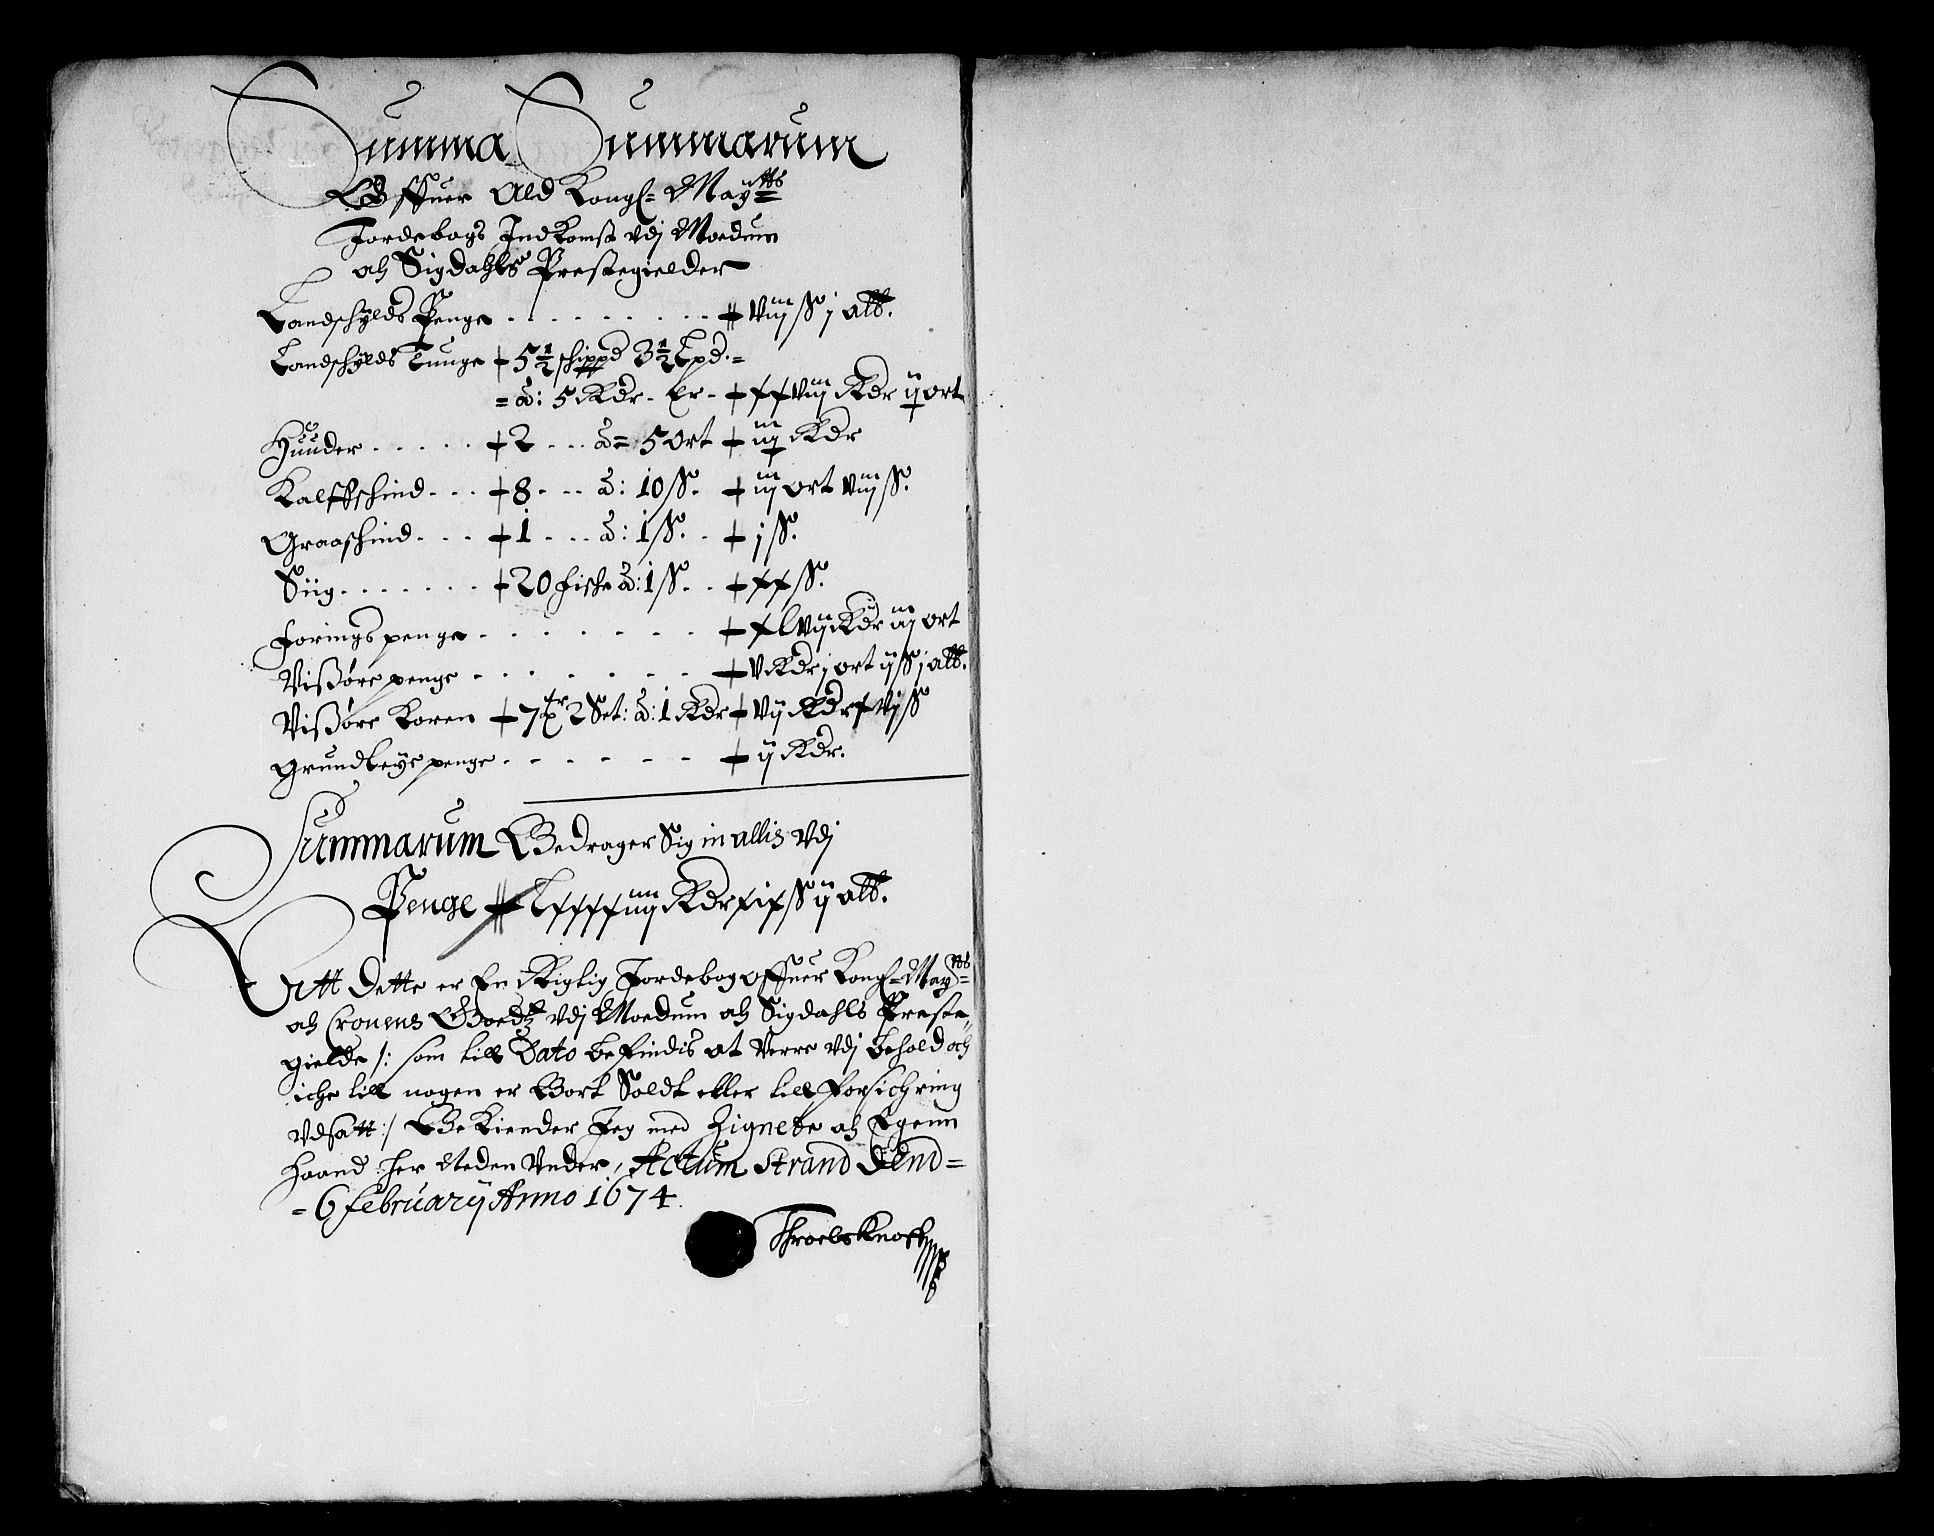 Summa Summarum
Offuer Ald Kongl= Mayttz
Jordebogs Indkomst vdj Moedum
och Sigdahls Prestegielder
Landschylds Penge . . . . . . . . . viij ß j alb.
Landschylds Tunge + 5½ schippd 3½ Lpd.=
= à: 5 Rdr - Er - + xxviij Rdr ij ort
Huuder . . . . . + 2 . . . à= 5 ort + iij Rdr
Kalffschind . . . + 8 . . . à: 10 ß. + iij ort viij ß.
Graaschind . . . + 1 . . . à: 1 ß. . + j ß.
Siig . . . . . . . + 20 fische à: 1 ß. . + xx ß.
Foringspenge . . . . . . . + xlvij Rdr iij ort
Vißøre penge . . . . . . . + v Rdr j ort ij ß j alb.
Vißøre Koren + 7 tr 2 Set: à: 1 Rdr + vij Rdr xvj ß
Grundleye penge . . . . . . + ij Rdr.
Summarum Bedrager Sig in allis vdj
Penge Lxxxxiiij Rdr xix ß ij alb.
Att dette er En Rigtig Jordebog offuer Kongl= Mayttz=
och Cronens Goedtz vdj Moedum och Sigdahls Preste„
gielde /: som till Dato befindis at Verre vdj behold och
iche till nogen er Bort Soldt eller till forsichring
vdsatt :/ Bekiender Jeg med Zignete och Egenn
haand her Neden Vnder, Actum Strand Dend=
= 6 February Anno 1674.
Throels Knoff